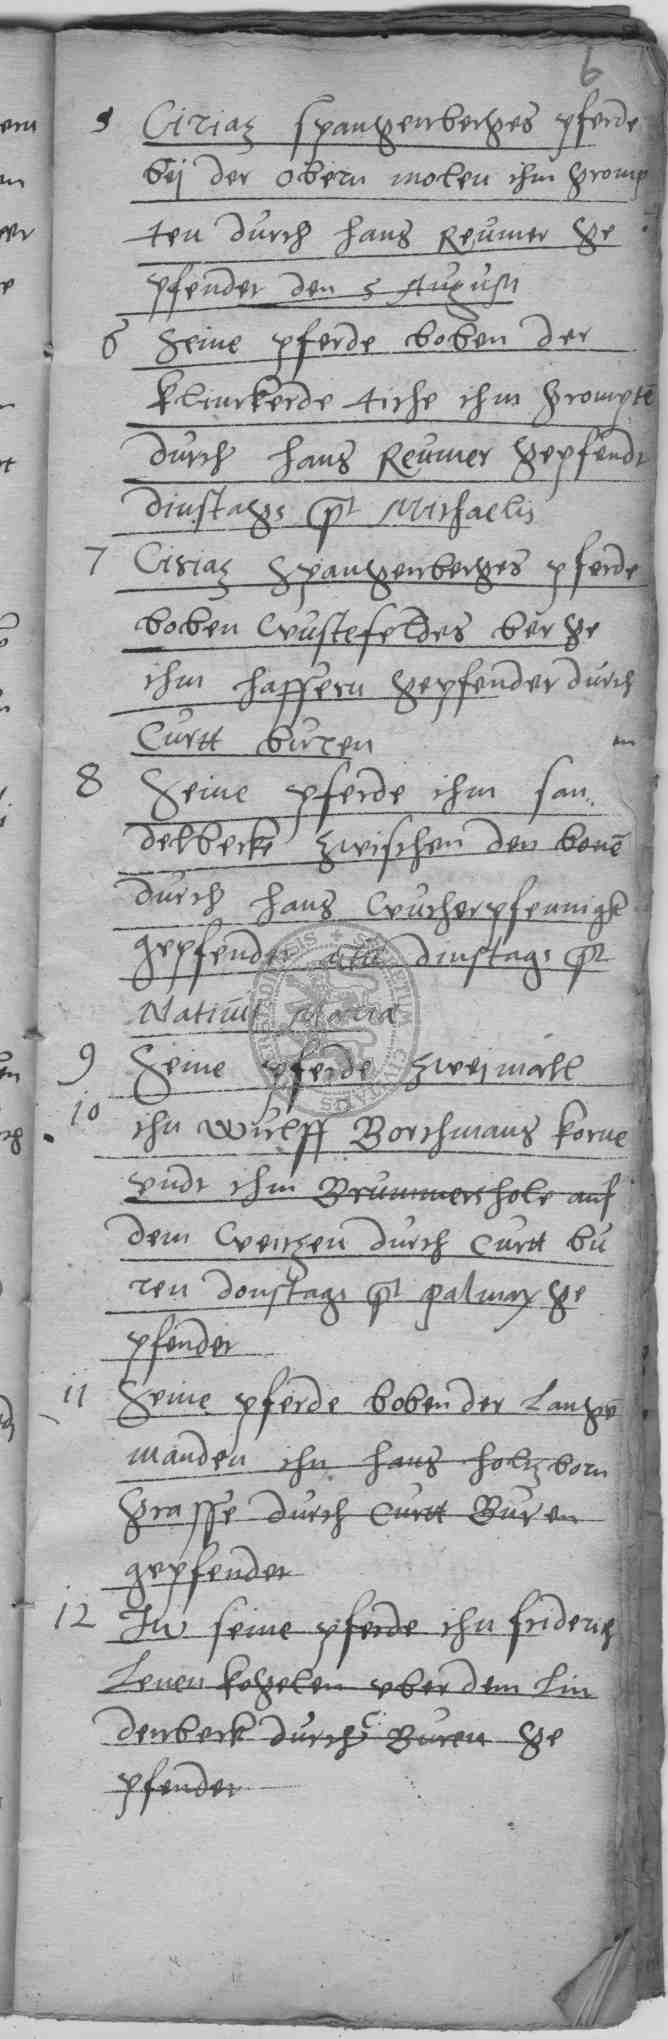 6
5 Ciriaz Spangenberges pferde
bÿ der obern molen ihm gromp
ten durch hans Reumer ge
pfendet den 5 Augusti
6 Seine pferde boben der
klinckerde tiche ihm grompte
durch hans Reumer gepfendt
dinstags pt Michaelis
7 Ciriaz Spangenberges pferde
boben Wustefeldes berge
ihm haffern gepfendet durch
Curtt buren
8 Seine pferde ihm san
delbecke zwischen den bone
durch hans Wucherpfennigk
gepfendet dinstags pt
Nativit Maria
9 Seine pferde zweimall
10 ihn Wulff Borchmans korne
vndt ihm Brummershole auf
dem Weitzen durch Curtt bu
ren donstags pt palmar ge
pfendet
11 Seine pferde boben der Lange
manden ihn hans holtzborn
grasse durch Curtt Buren
gepfendet
12 Itz seine pferde ihn friderich
Lenen kogelen vber dem Lin
denbeck durch C Buren ge
pfendet